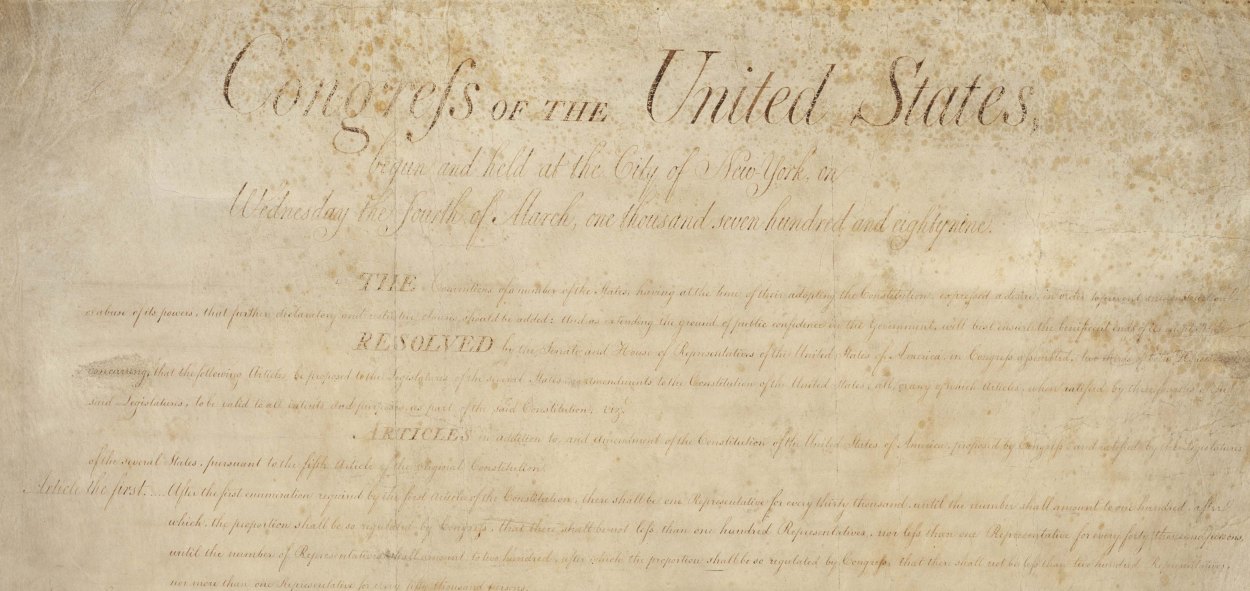 Congreſs OF THE United States,
begun and held at the City of New-York, on
Wednesday the fourth of March, one thousand seven hundred and eighty nine.
THE Conventions of a number of the States, having at the time of their adopting the Constitution, expreſsed a desire, in order to prevent misconstruction
or abuse of its powers, that further declaratory and restrictive clauses should be added: And as extending the ground of public confidence in the Government, will best ensure the beneficent ends of its
RESOLVED by the Senate and House of Representatives of the United States of America, in Congreſs aſsembled, two thirds of both Houses
concurring, that the following Articles be proposed to the Legislatures of the several States, as amendments to the Constitution of the United States, all, or any of which Articles, when ratified by three fourths of the
said Legislatures, to be valid to all intents and purposes, as part of the said Constitution; viz.
ARTICLES in addition to, and amendment of the Constitution of the United States of America, proposed by Congreſs, and ratified by the Legislatures
of the several States, pursuant to the fifth Article of the original Constitution.
Article the first. .... After the first enumeration required by the first Article of the Constitution, there shall be one Representative for every thirty thousand, until the number shall amount to one hundred, after
which, the proportion shall be so regulated by Congreſs, that there shall be not leſs than one hundred Representatives, nor leſs than one Representative for every forty thousand persons,
until the number of Representatives shall amount to two hundred, after which the proportion shall be so regulated by Congreſs, that there shall not be leſs than two hundred Representatives,
nor more than one Representative for every fifty thousand persons.